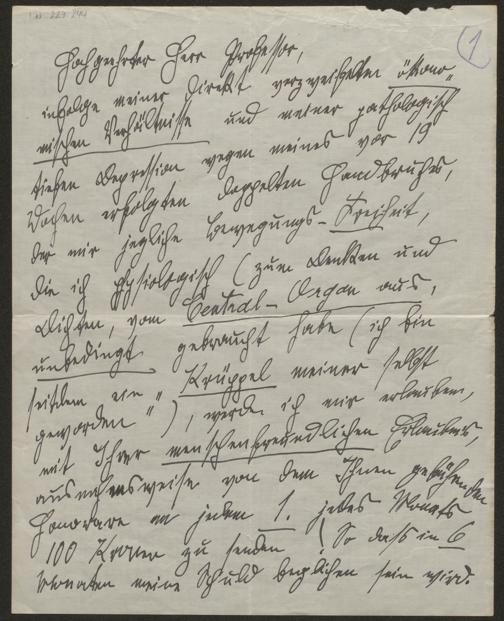 I.N. 223.744
1
Hochgeehrter Herr Professor,
infolge meiner direkt verzweifelten ökono-
mischen Verhältnisse und meiner pathologisch
tiefen Depression wegen meines vor 19
Wochen erfolgten doppelten Handbruches,
der mir jegliche Bewegungs-Freiheit,
die ich physiologisch (zum Denken und
Dichten, vom Central-Organ aus,
unbedingt gebraucht habe (ich bin
seitdem ein "Krüppel meiner selbst
geworden"), werde ich mir erlauben,
mit Ihrer menschenfreundlichen Erlaubnis,
ausnahmsweise von dem Ihnen gebührenden
Honorare an jedem 1. jedes Monats
100 Kronen zu senden! So dass in 6
Monaten meine Schuld beglichen sein wird.